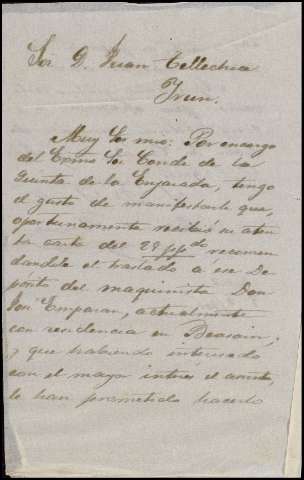 Sor. D. Juan Tellechea
Irun.
Muy Sr mio: Por encargo
del Excmo Sor Conde de la
Quinta de la Enjarada, tengo
el gusto de manifestarle que,
oportunamente recibió su aten
ta carta del 29 ppdo recomen
dandole el traslado á ese De
pósito del maquinista Don
José Emparan, actualmente
con residencia en Beasain;
y que habiendo interesado
con el mayor interés el asunto,
le han prometido hacerlo